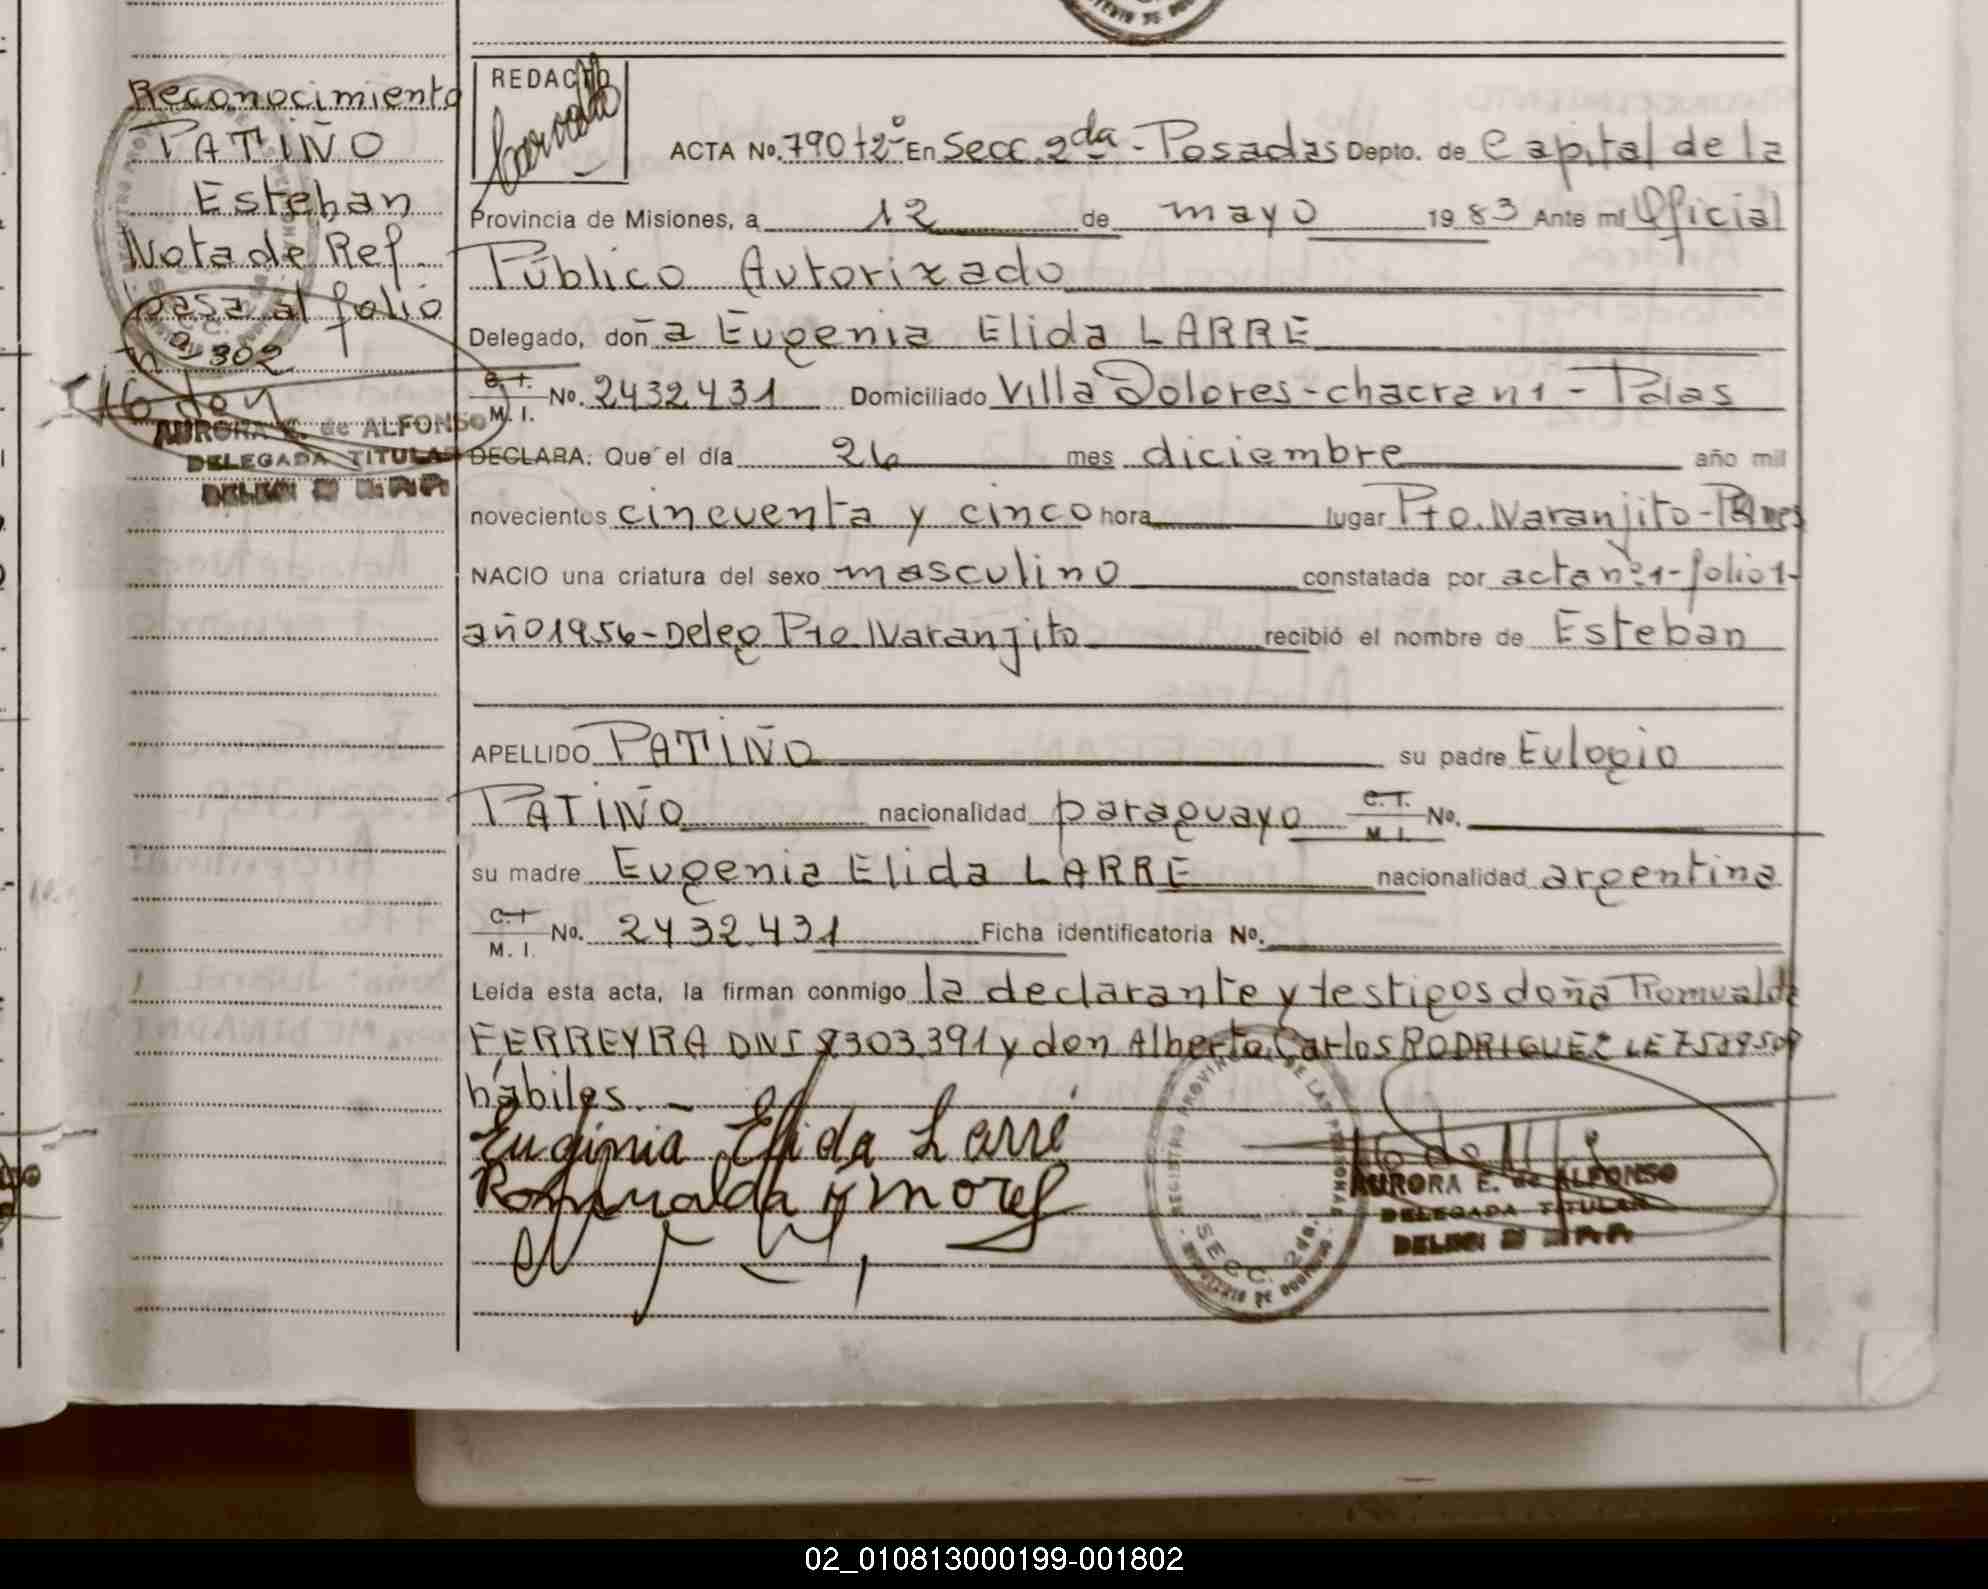 Reconocimiento
PATIÑO
Esteban
Nota de Ref.
pasa al folio
nº 302
AURORA E. de ALFONSO
DELEGADA TITULAR
REDACTO
ACTA No. 790 tº 2º En Secc. 2da - Posadas Depto. de Capital de la
Provincia de Misiones, a 12 de mayo 1983 Ante mí Oficial
Público Autorizado
Delegado, doña Eugenia Elida LARRE
C.I. M.I. No. 2432431 Domiciliado Villa Dolores - chacra n 1 - Pdas
DECLARA: Que el día 26 mes diciembre año mil
novecientos cincuenta y cinco hora lugar Pto. Naranjito -
NACIO una criatura del sexo masculino constatada por acta nº 1 - folio 1 -
año 1956 - Deleg. Pto Naranjito recibió el nombre de Esteban
APELLIDO PATIÑO su padre Eulogio
PATIÑO nacionalidad paraguayo C.I. M.I. No.
su madre Eugenia Elida LARRE nacionalidad argentina
C.I. M.I. No. 2432.431 Ficha identificatoria No.
Leída esta acta, la firman conmigo la declarante y testigos doña Romualda
FERREYRA DNI 9303.391 y don Alberto Carlos RODRIGUEZ LE
hábiles. -
Euginia Elida Larré
Romualda
REGISTRO PROVINCIAL DE LAS PERSONAS
SECC. 2da.
AURORA E. de ALFONSO
DELEGADA TITULAR
02_010813000199-001802